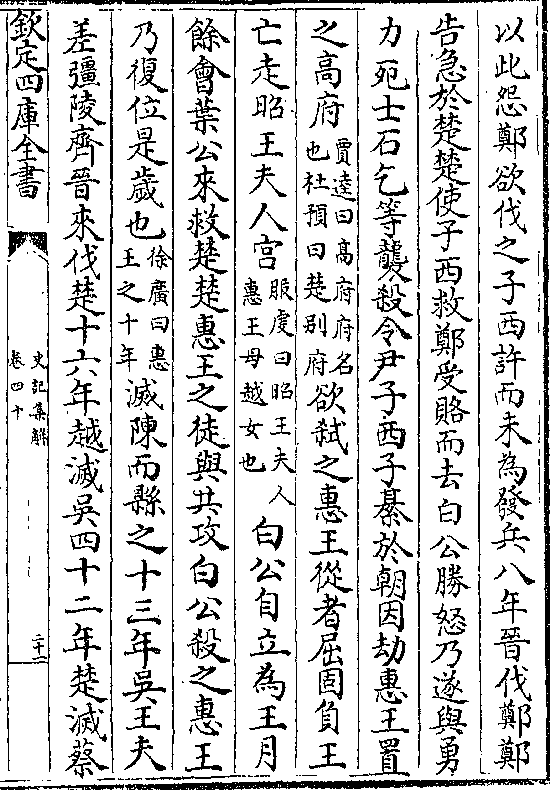 以此怨鄭欲伐之子西許而未為發兵八年晉伐鄭鄭
告急於楚楚使子西救鄭受賂而去白公勝怒乃遂與勇
力死士石乞等襲殺令尹子西子綦於朝因劫惠王置
之高府賈逵曰高府府名也杜預曰楚别府欲弑之惠王從者屈固負王
亡走昭王夫人宮服虔曰昭王夫人惠王母越女也白公自立為王月
餘會葉公來救楚楚惠王之徒與共攻白公殺之惠王
乃復位是歲也徐廣曰惠王之十年滅陳而縣之十三年吳王夫
差彊陵齊晉來伐楚十六年越滅吳四十二年楚滅蔡
欽定四庫全書
史記集解
卷四十
二十二